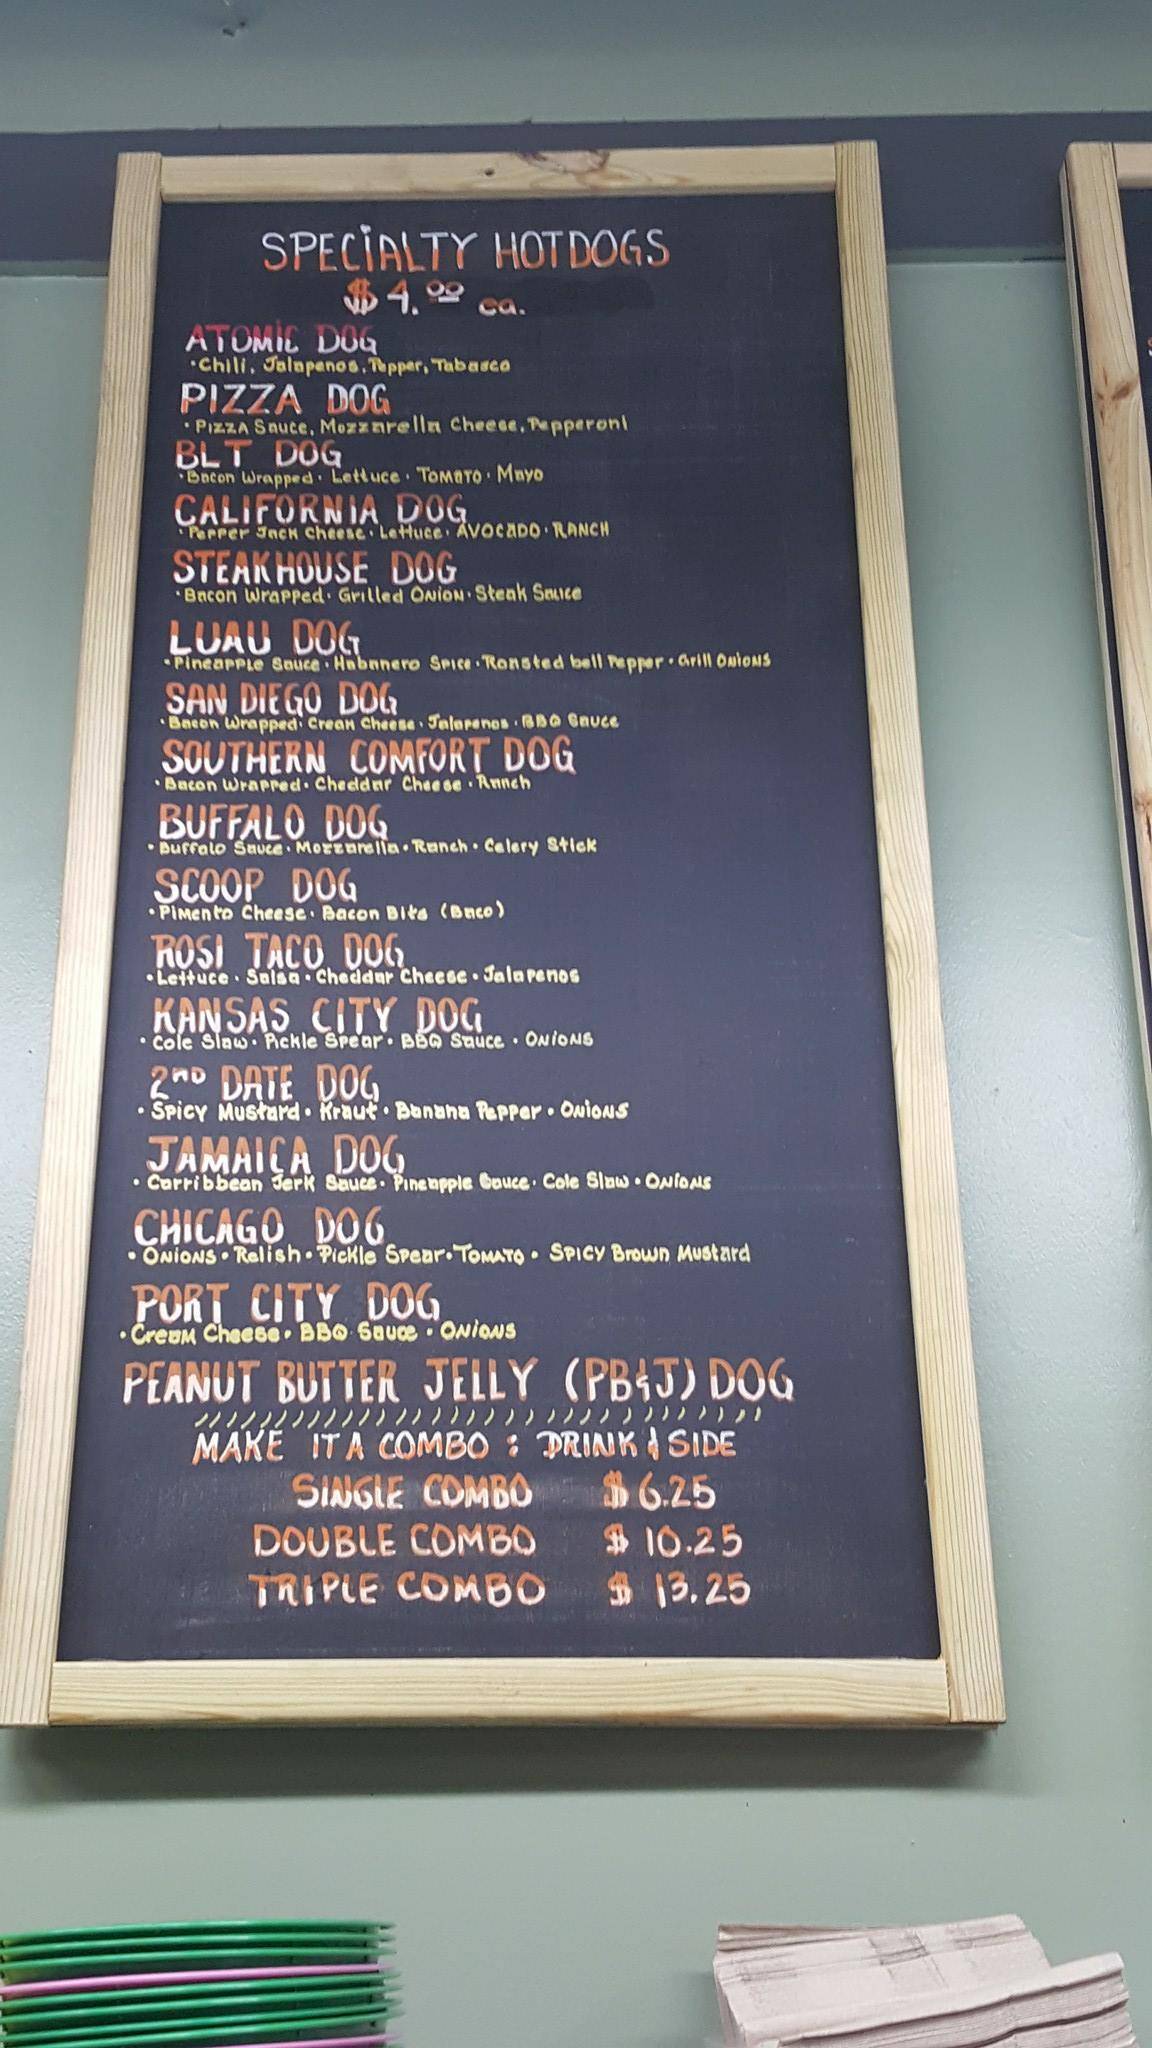 SPECIALTY HOTDOGS
$4.00 ea.
ATOMIC DOG
·Chili, Jalapenos, Pepper, Tabasco
PIZZA DOG
·Pizza Sauce, Mozzarella Cheese, Pepperoni
BLT DOG
·Bacon Wrapped·Lettuce·Tomato·Mayo
CALIFORNIA DOG
·Pepper Jack Cheese·Lettuce·AVOCADO·RANCH
STEAKHOUSE DOG
·Bacon Wrapped·Grilled Onion·Steak Sauce
LUAU DOG
·Pineapple Sauce·Habanero Spice·Roasted bell Pepper·Grill Onions
SAN DIEGO DOG
·Bacon Wrapped·Cream Cheese·Jalapenos·BBQ Sauce
SOUTHERN COMFORT DOG
·Bacon Wrapped·Cheddar Cheese·Ranch
BUFFALO DOG
·Buffalo Sauce·Mozzarella·Ranch·Celery Stick
SCOOP DOG
·Pimento Cheese·Bacon Bits (Baco)
ROSI TACO DOG
·Lettuce·Salsa·Cheddar Cheese·Jalapenos
KANSAS CITY DOG
·Cole Slaw·Pickle Spear·BBQ Sauce·Onions
2ND DATE DOG
·Spicy Mustard·Kraut·Banana Pepper·Onions
JAMAICA DOG
·Carribbean Jerk Sauce·Pineapple Sauce·Cole Slaw·Onions
CHICAGO DOG
·Onions·Relish·Pickle Spear·Tomato·Spicy Brown Mustard
PORT CITY DOG
·Cream Cheese·BBQ Sauce·Onions
PEANUT BUTTER JELLY (PB&J) DOG
MAKE IT A COMBO: DRINK & SIDE
SINGLE COMBO $6.25
DOUBLE COMBO $10.25
TRIPLE COMBO $13.25